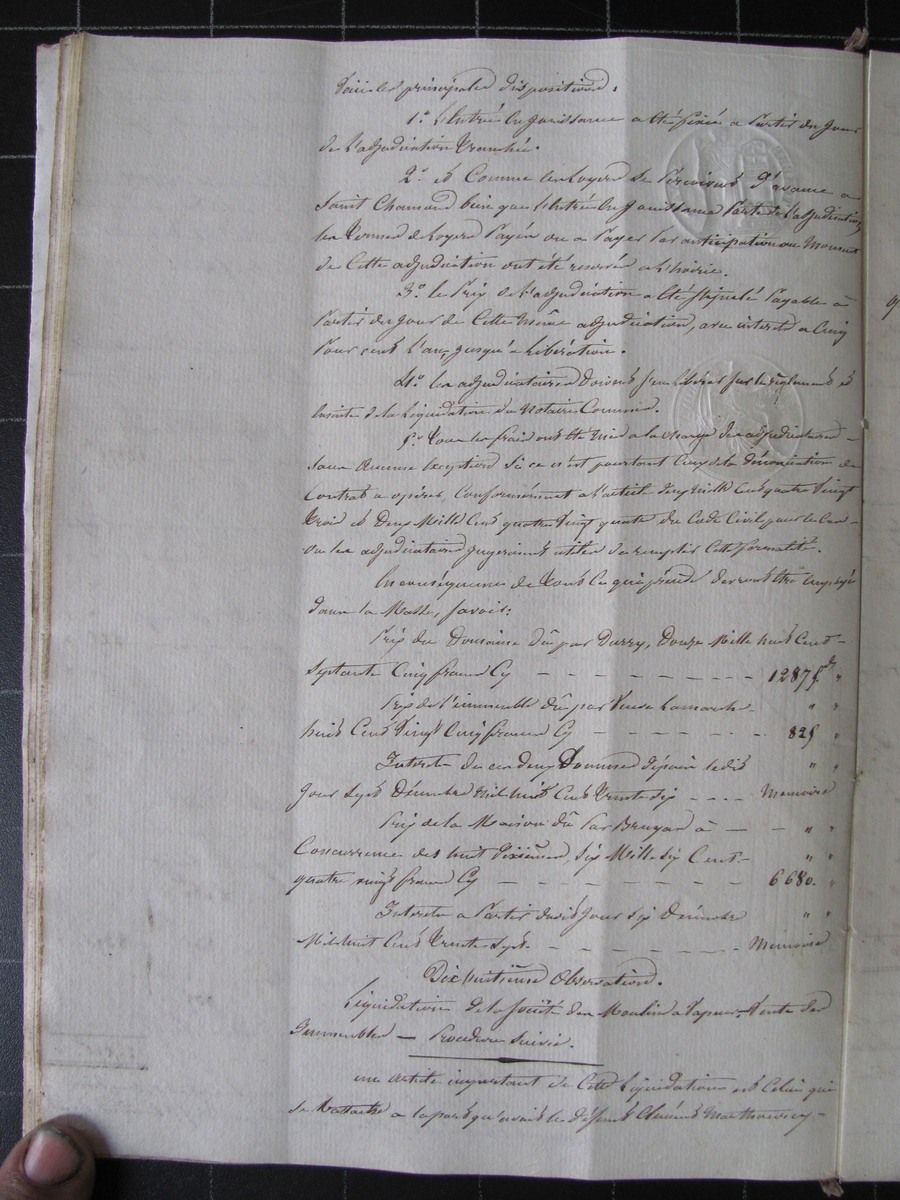 Voici les principales dispositions :
1.° L'Entrée en Jouissance a été fixée a Partir du Jour
de L'adjudication tranchée.
2.° et Comme les Loyers Se Perçoivent d'avance a
Saint Chamond bien que L'Entrée en Jouissance Parte de L'adjudication,
les termes de Loyers Payés ou a Payer Par anticipation au Moment
de Cette adjudication ont été reservés a L'hoirie.
3.° le Prix de L'adjudication a été Stipulé Payable à
Partir du Jour de Cette Même adjudication, avec interets a Cinq
Pour cent L'an, jusqu'a Libération.
4.° les adjudicataires doivent S'en libérer Sur le règlement et
Ensuite de la Liquidation du Notaire Commis.
5.° Tous les frais ont été Mis a la charge des adjudicataires
Sans Aucune Exception Si ce n'est pourtant Ceux de la dénonciation du
Contrat a opérer, Conformément a l'article deux mille Cent quatre Vingt
Trois et Deux Mille Cent quatre Vingt quatre du Code Civil pour le Cas
ou les adjudicataires jugeraient utiles de remplir Cette formalité.
En conséquence de tout Ce qui précède devront être Employés
dans la Masse, Savoir :
Prix du Domaine dû par Durzy, Douze Mille huit Cent
Septante Cinq francs Cy — — — 12875.
Prix de l'immeuble dû par Veuve Lamarche " "
huit Cent Vingt Cinq francs Cy — — — 825 "
Interets de ces deux Sommes depuis le dit " "
Jour Sept Décembre Mil huit Cent Trente Six — — — Memoire
Prix de la Maison dû Par Bruyas à — — " "
Concurrence des huit dixièmes, Six Mille Six Cent " "
quatre vingt francs Cy — — — 6680. "
Interets a Partir dudit Jour Six Décembre " "
Mil huit Cent Trente Sept — — — Memoire
Dix huitième Observation.
Liquidation de la Société du Moulin a Vapeur — Vente des
Immeubles — Procédure Suivie.
un article important de Cette Liquidation est Celui qui
Se Rattache a la part qu'avait le défunt Clément